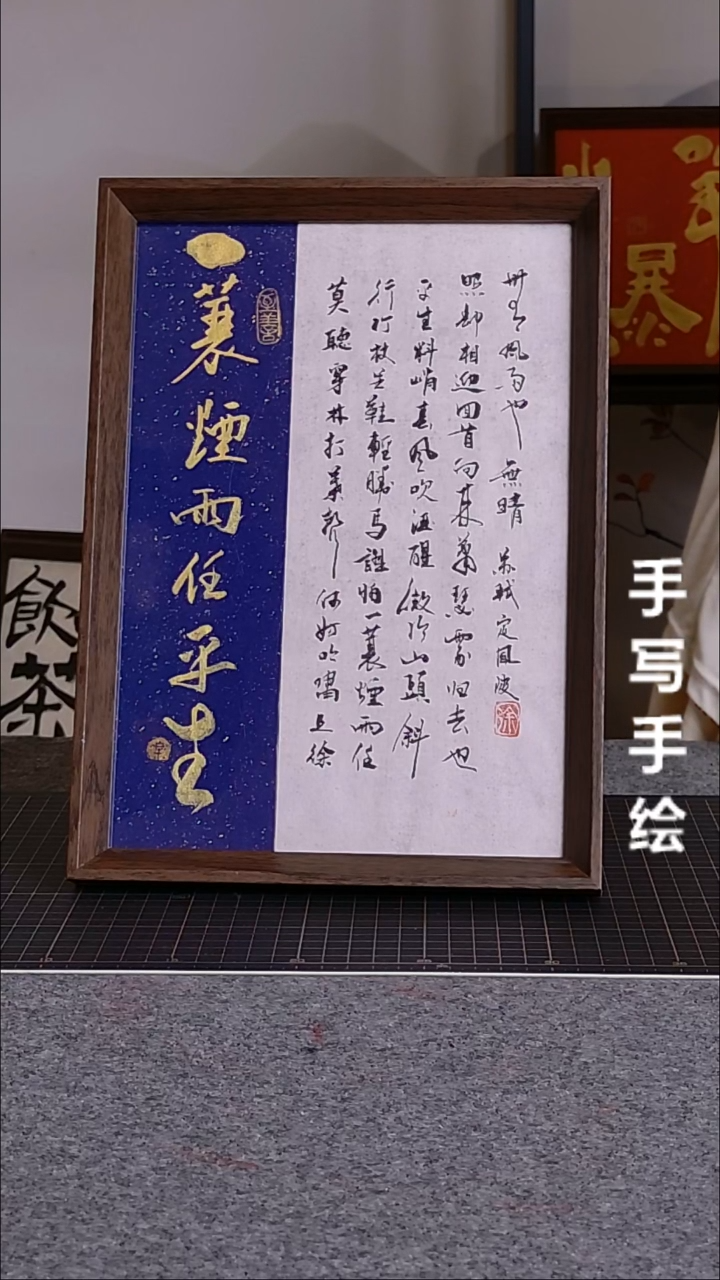 一蓑煙雨任平生
莫聽穿林打葉聲何妨吟嘯且徐
行竹杖芒鞋輕勝馬誰怕一蓑煙雨任
平生料峭春風吹酒醒微冷山頭斜
照却相迎回首向来蕭瑟處归去也
無風雨也無晴 苏轼定風波
徐
飲茶
手写手绘